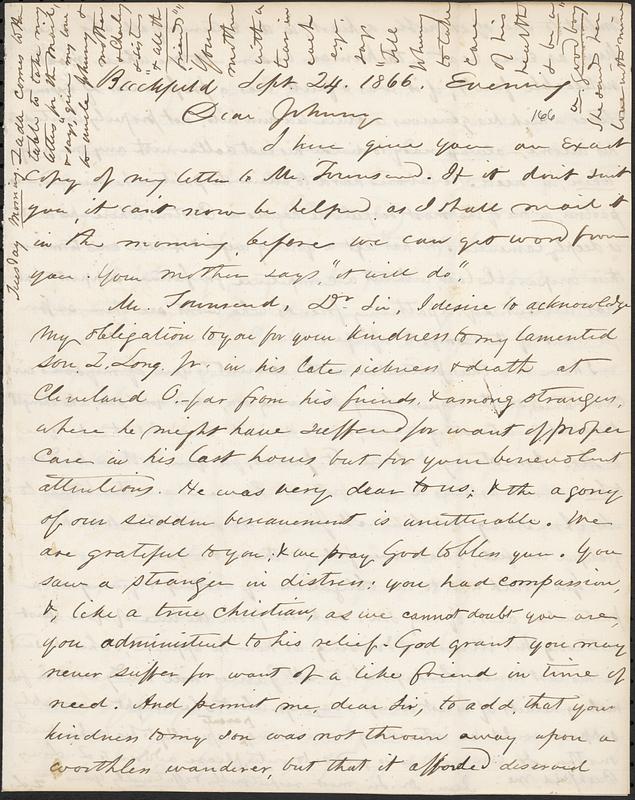 Buckfield Sept. 24. 1866. Evening
Dear Johnny
166
I here give you an exact
copy of my letter to Mr. Townsend. If it don't suit
you, it can't now be helped as I shall mail it
in the morning before we can get word from
you. Your mother says, "it will do".
Mr. Townsend, Dr Sir, I desire to acknowledge
my obligation to you for your kindness to my lamented
son, Z. Long. Jr. in his late sickness & death at
Cleveland O.- far from his friends, & among strangers,
where he might have suffered for want of proper
care in his last hours but for your benevolent
attentions. He was very dear to us; & the agony
of our sudden bereavement is unutterable. We
are grateful to you; & we pray God to bless you. You
saw a stranger in distress: you had compassion,
&, like a true Christian, as we cannot doubt you are
you administered to his relief. God grant you may
never suffer for want of a like friend in time of
need. And permit me, dear Sir, to add, that your
kindness to my son was not thrown away upon a
worthless wanderer, but that it afforded deserved
Tuesday Morning Zadie comes to the
table to take my
letter to the mail,
& says, give my love
to uncle Johnny &
mother
& Sister
"& all the
friends".
Your
mother
with a
tear in
each
eye
says "Tell
Johnny
to take
care
of his
health
& be a"
a good boy
She sends her
love with mine